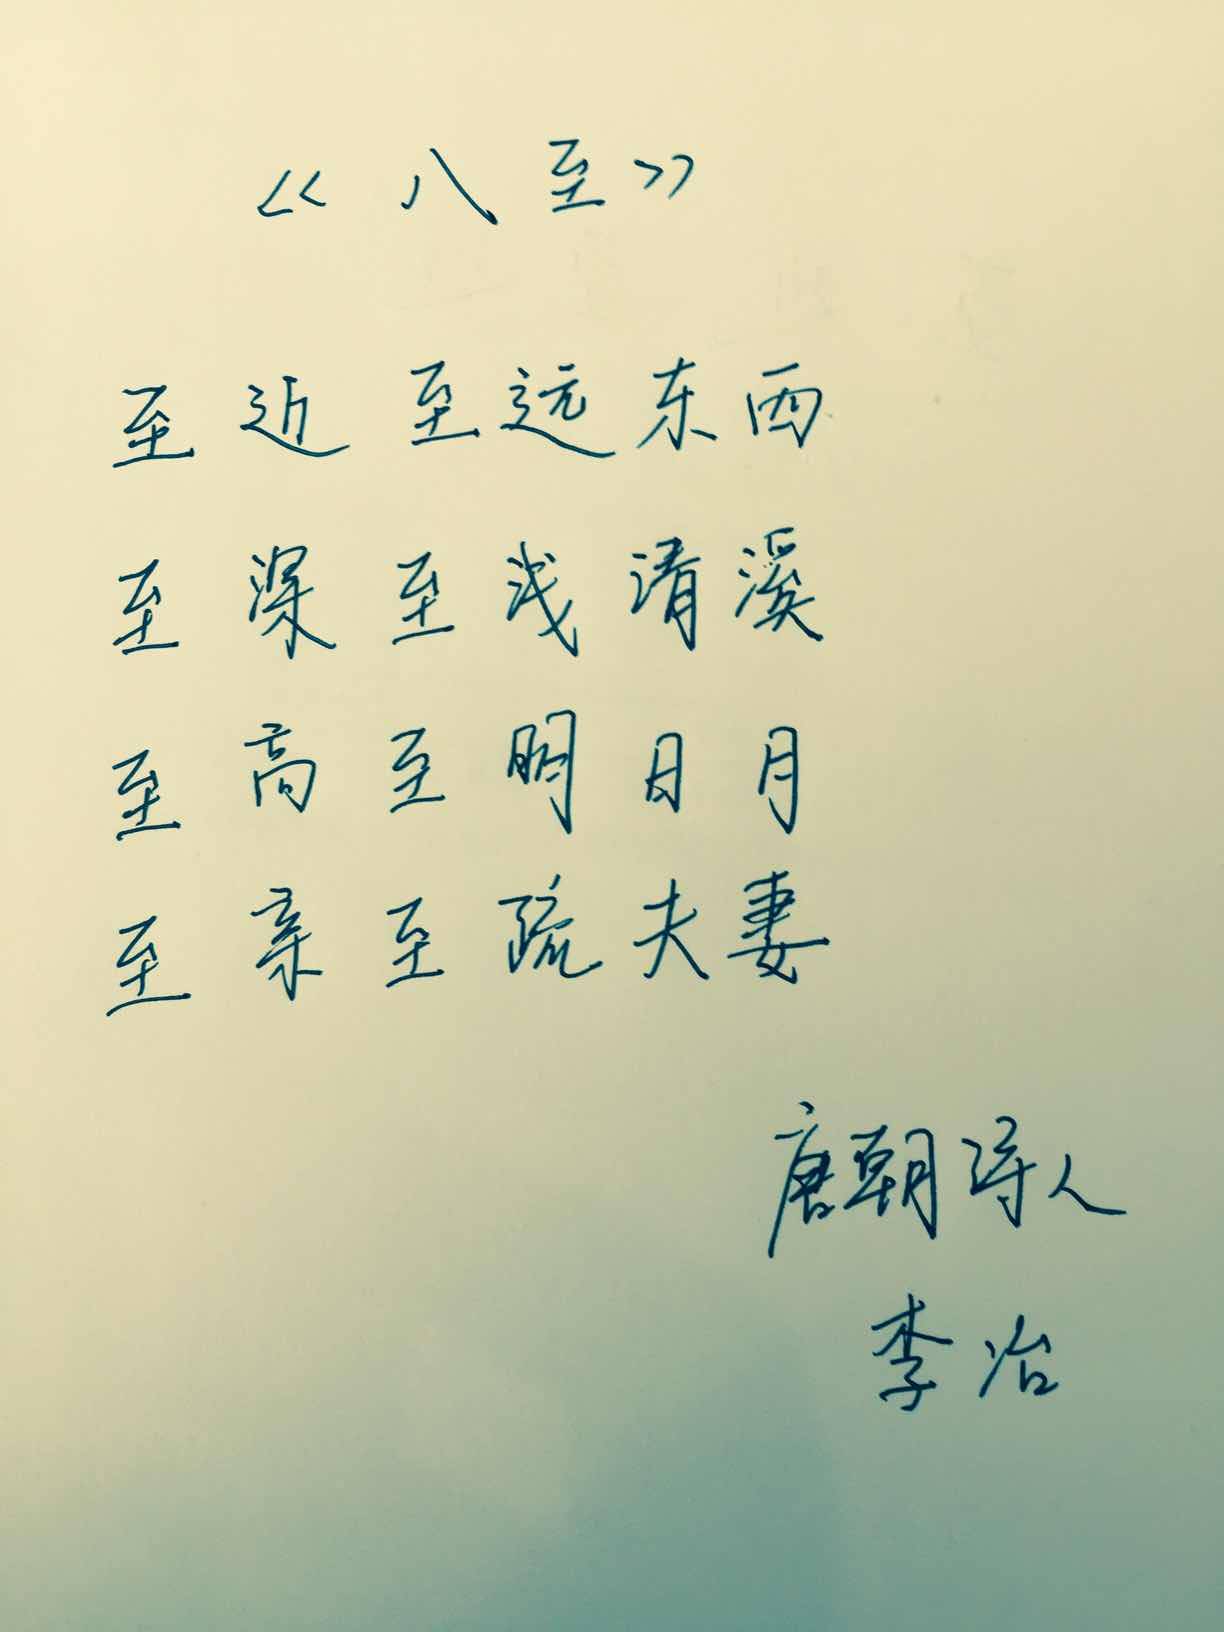 《八至》
至近至远东西
至深至浅清溪
至高至明日月
至亲至疏夫妻
唐朝诗人
李冶